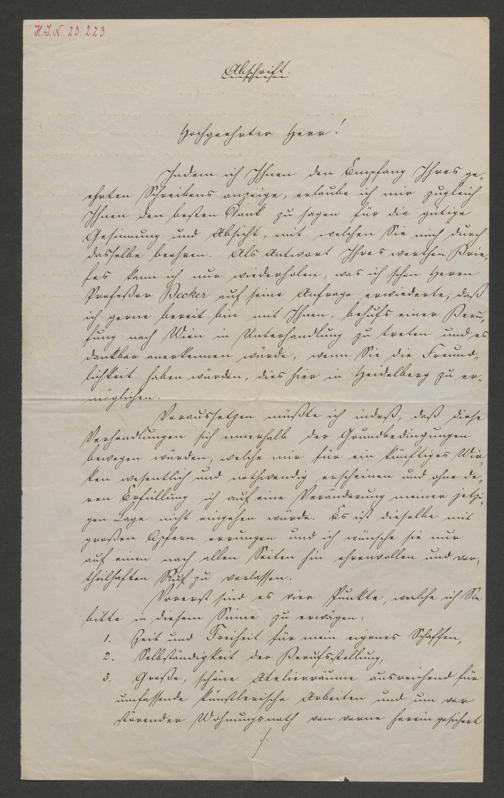 H.I.N. 23.223
Abschrift.
Hochgeehrter Herr!
Indem ich Ihnen den Empfang Ihres ge-
ehrten Schreibens anzeige, erlaube ich mir zugleich
Ihnen den besten Dank zu sagen für die gütige
Gesinnung und Absicht, mit welchen Sie mich durch
dasselbe beehren. Als Antwort Ihres werthen Brie-
fes kann ich nur wiederholen, was ich schon Herrn
Professor Becker auf seine Anfrage erwiederte, daß
ich gerne bereit bin mit Ihnen, behufs einer Beru-
fung nach Wien in Unterhandlung zu treten und es
dankbar anerkennen würde, wenn Sie die Freund-
lichkeit haben würden, dies hier in Heidelberg zu er-
möglichen.
Voraussetzen müßte ich indeß, daß diese
Verhandlungen sich innerhalb der Grundbedingungen
bewegen würden, welche mir für ein künftiges Wir-
ken wesentlich und nothwendig erscheinen und ohne de-
ren Erfüllung ich auf eine Veränderung meiner jetzi-
gen Lage nicht eingehen würde. Es ist dieselbe mit
großen Opfern errungen und ich wünsche sie nur
auf einen nach allen Seiten hin ehrenvollen und vor-
theilhaften Ruf zu verlassen.
Vorerst sind es vier Punkte, welche ich Sie
bitte in diesem Sinne zu erwägen:
1. Zeit und Freiheit für mein eigenes Schaffen,
2. Selbständigkeit der Berufsstellung,
3. Große, schöne Atelierräume ausreichend für
umfassende künstlerische Arbeiten und um vor
störender Wohnungsnoth von vorne herein gesichert